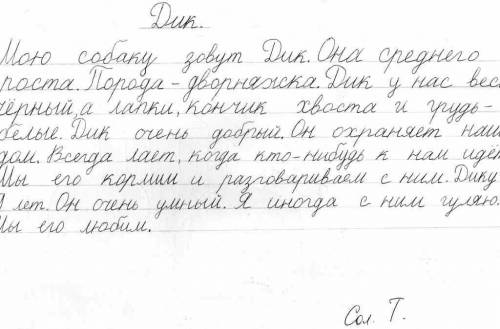 Дик.
Мою собаку зовут Дик. Она среднего
роста. Порода - дворняжка. Дик у нас вес
чёрный, а лапки, кончик хвоста и грудь -
белые. Дик очень добрый. Он охраняет наш
дом. Всегда лает, когда кто-нибудь к нам идет
Мы его кормим и разговариваем с ним. Дику
9 лет. Он очень умный. Я иногда с ним гуляю.
Мы его любим.
Сол. Т.